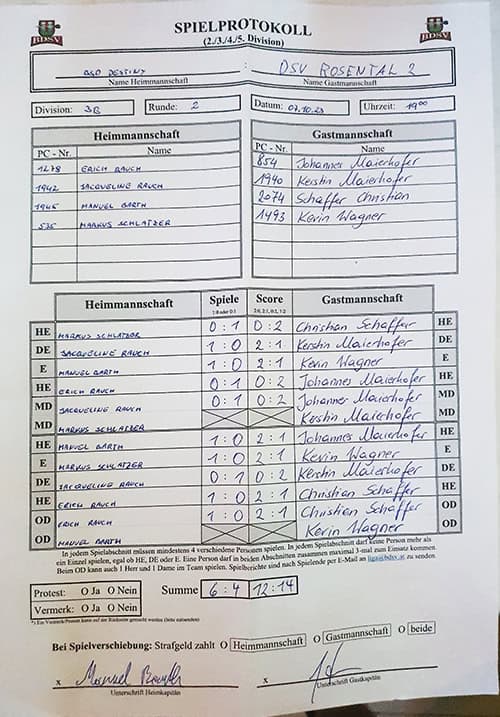 SPIELPROTOKOLL
(2./3./4./5. Division)
BDSV
BDSV
BSO DESTINY : DSV ROSENTAL 2
Name Heimmannschaft Name Gastmannschaft
Division: 3B Runde: 2 Datum: 07.10.23 Uhrzeit: 19⁰⁰
Heimmannschaft Gastmannschaft
PC - Nr. Name PC - Nr. Name
1278 ERICH RAUCH 854 Johannes Maierhofer
1942 JACQUELINE RAUCH 1940 Kerstin Maierhofer
1945 MANUEL BARTH 2074 Schaffer Christian
535 MARKUS SCHLATZER 1493 Kevin Wagner
Heimmannschaft Spiele Score Gastmannschaft
1:0 oder 0:1 2:0, 2:1, 0:2, 1:2
HE MARKUS SCHLATZER 0 : 1 0 : 2 Christian Schaffer HE
DE JACQUELINE RAUCH 1 : 0 2 : 1 Kerstin Maierhofer DE
E MANUEL BARTH 1 : 0 2 : 1 Kevin Wagner E
HE ERICH RAUCH 0 : 1 0 : 2 Johannes Maierhofer HE
MD JACQUELINE RAUCH 0 : 1 0 : 2 Johannes Maierhofer MD
MD MARKUS SCHLATZER Kerstin Maierhofer MD
HE MANUEL BARTH 1 : 0 2 : 1 Johannes Maierhofer HE
E MARKUS SCHLATZER 1 : 0 2 : 1 Kevin Wagner E
DE JACQUELINE RAUCH 0 : 1 0 : 2 Kerstin Maierhofer DE
HE ERICH RAUCH 1 : 0 2 : 1 Christian Schaffer HE
OD ERICH RAUCH 1 : 0 2 : 1 Christian Schaffer OD
OD MANUEL BARTH Kevin Wagner OD
In jedem Spielabschnitt müssen mindestens 4 verschiedene Personen spielen. In jedem Spielabschnitt darf keine Person mehr als
ein Einzel spielen, egal ob HE, DE oder E. Eine Person darf in beiden Abschnitten zusammen maximal 3-mal zum Einsatz kommen.
Beim OD kann auch 1 Herr und 1 Dame im Team spielen. Spielberichte sind nach Spielende per E-Mail an liga@bdsv.at zu senden.
Protest: O Ja O Nein Summe 6 : 4 12 : 14
Vermerk: O Ja O Nein
*) Ein Vermerk/Protest kann auf der Rückseite gemacht werden (bitte umseitig)
Bei Spielverschiebung: Strafgeld zahlt O Heimmannschaft O Gastmannschaft O beide
x Manuel Barth x
Unterschrift Heimkapitän Unterschrift Gastkapitän